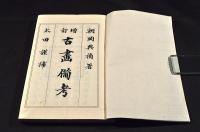 朝岡興禎著
增訂
古畫備考
太田謹補